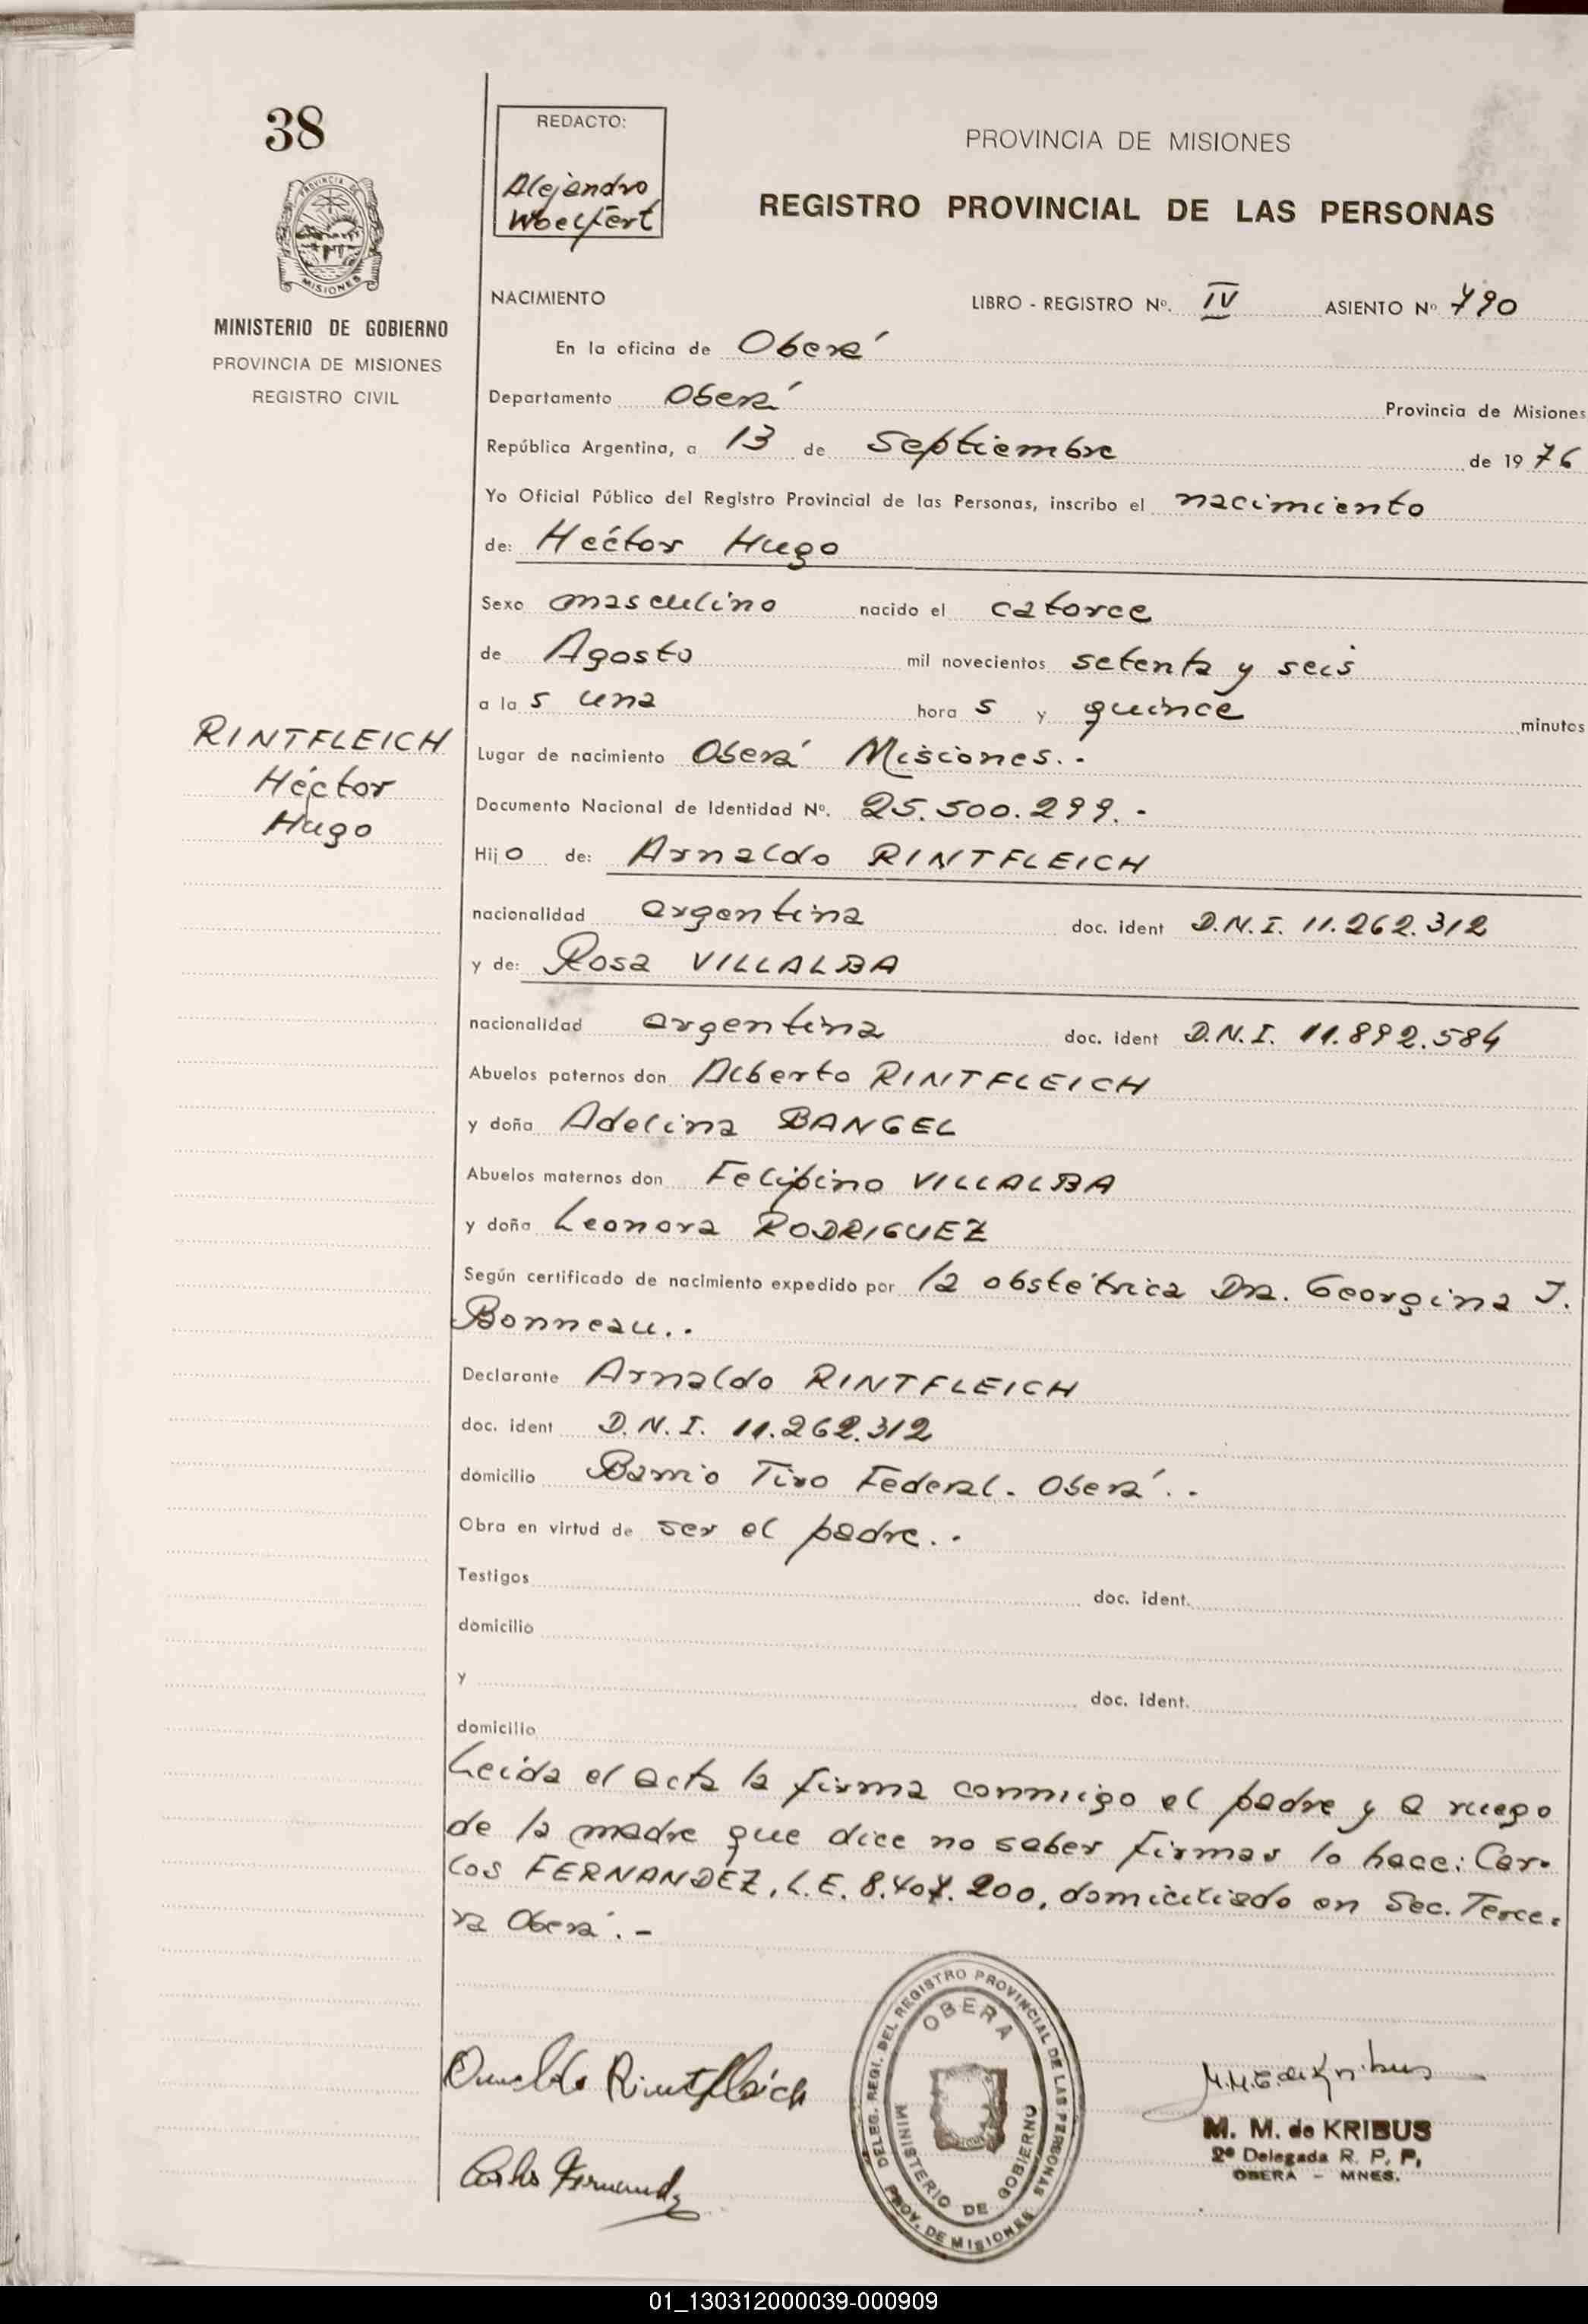 38
REDACTO:
Alejandro
Woelfert
PROVINCIA DE MISIONES
REGISTRO PROVINCIAL DE LAS PERSONAS
PROVINCIA DE
MISIONES
MINISTERIO DE GOBIERNO
PROVINCIA DE MISIONES
REGISTRO CIVIL
NACIMIENTO LIBRO - REGISTRO Nº. IV ASIENTO Nº 790
En la oficina de Oberá
Departamento Oberá Provincia de Misiones
República Argentina, a 13 de Septiembre de 1976
Yo Oficial Público del Registro Provincial de las Personas, inscribo el nacimiento
de: Héctor Hugo
Sexo masculino nacido el catorce
de Agosto mil novecientos setenta y seis
a las una horas y quince minutos
RINTFLEICH
Héctor
Hugo
Lugar de nacimiento Oberá Misiones.-
Documento Nacional de Identidad Nº. 25.500.299.-
Hijo de: Arnaldo RINTFLEICH
nacionalidad argentina doc. ident D.N.I. 11.262.312
y de: Rosa VILLALBA
nacionalidad argentina doc. ident D.N.I. 11.892.584
Abuelos paternos don Alberto RINTFLEICH
y doña Adelina BANGEL
Abuelos maternos don Felipino VILLALBA
y doña Leonora RODRIGUEZ
Según certificado de nacimiento expedido por la obstétrica Dra. Georgina J.
Bonneau..
Declarante Arnaldo RINTFLEICH
doc. ident D.N.I. 11.262.312
domicilio Barrio Tiro Federal. Oberá..
Obra en virtud de ser el padre..
Testigos doc. ident.
domicilio
y doc. ident.
domicilio
Leida el acta la firma conmigo el padre y a ruego
de la madre que dice no saber firmar lo hace: Car-
los FERNANDEZ, L.E. 8.407.200, domiciliado en Sec. Terce-
ra Oberá.-
DELEG. REGI. DEL REGISTRO PROVINCIAL DE LAS PERSONAS
OBERA
MINISTERIO DE GOBIERNO
PROV. DE MISIONES
Arnaldo Rintfleich
M.M.E. de Kribus
M. M. de KRIBUS
2ª Delegada R. P. P.
OBERA - MNES.
Carlos Fernandez
01_130312000039-000909